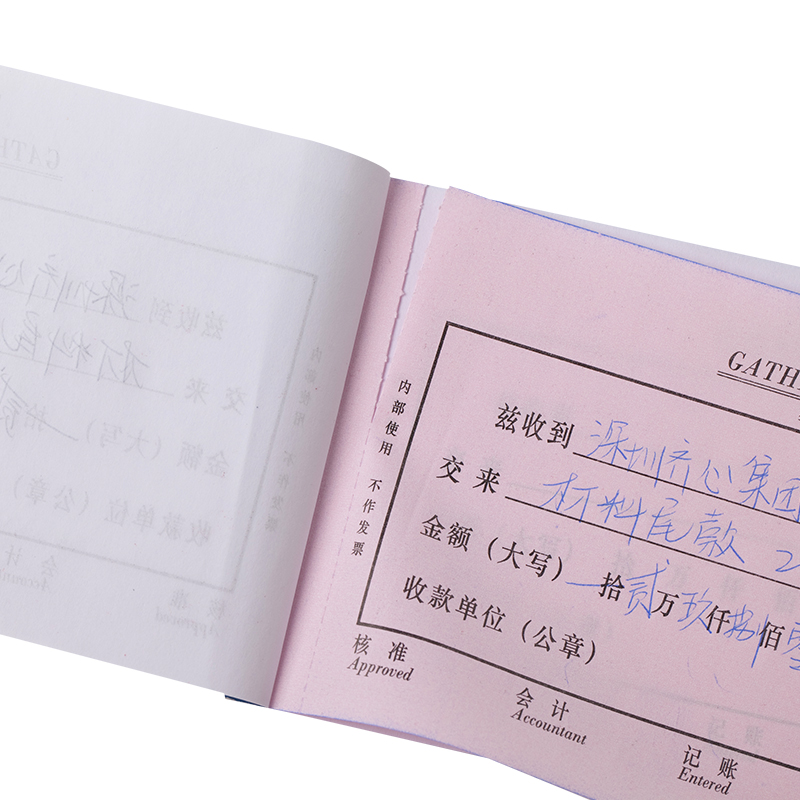 GATH
兹收到 深圳齐心集团
交来 材料尾款 2
金额（大写） 拾贰万玖仟捌佰零
收款单位（公章）
内部使用 不作发票
核准
Approved
会计
Accountant
记账
Entered